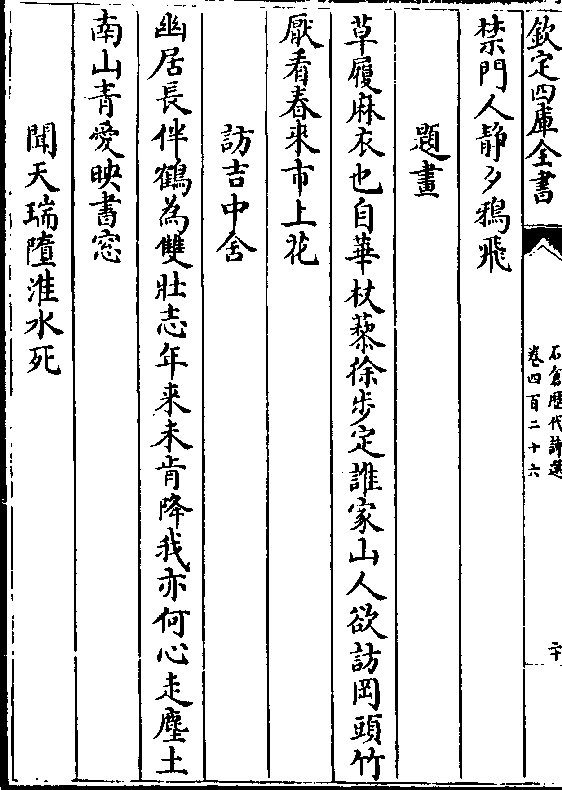 欽定四庫全書
石倉歴代詩選
卷四百二十六
二十
禁門人靜夕鴉飛
題畫
草履麻衣也自華杖藜徐步定誰家山人欲訪岡頭竹
厭看春來市上花
訪吉中舍
幽居長伴鶴為雙壯志年來未肯降我亦何心走塵土
南山青愛映書窓
聞天瑞墮淮水死